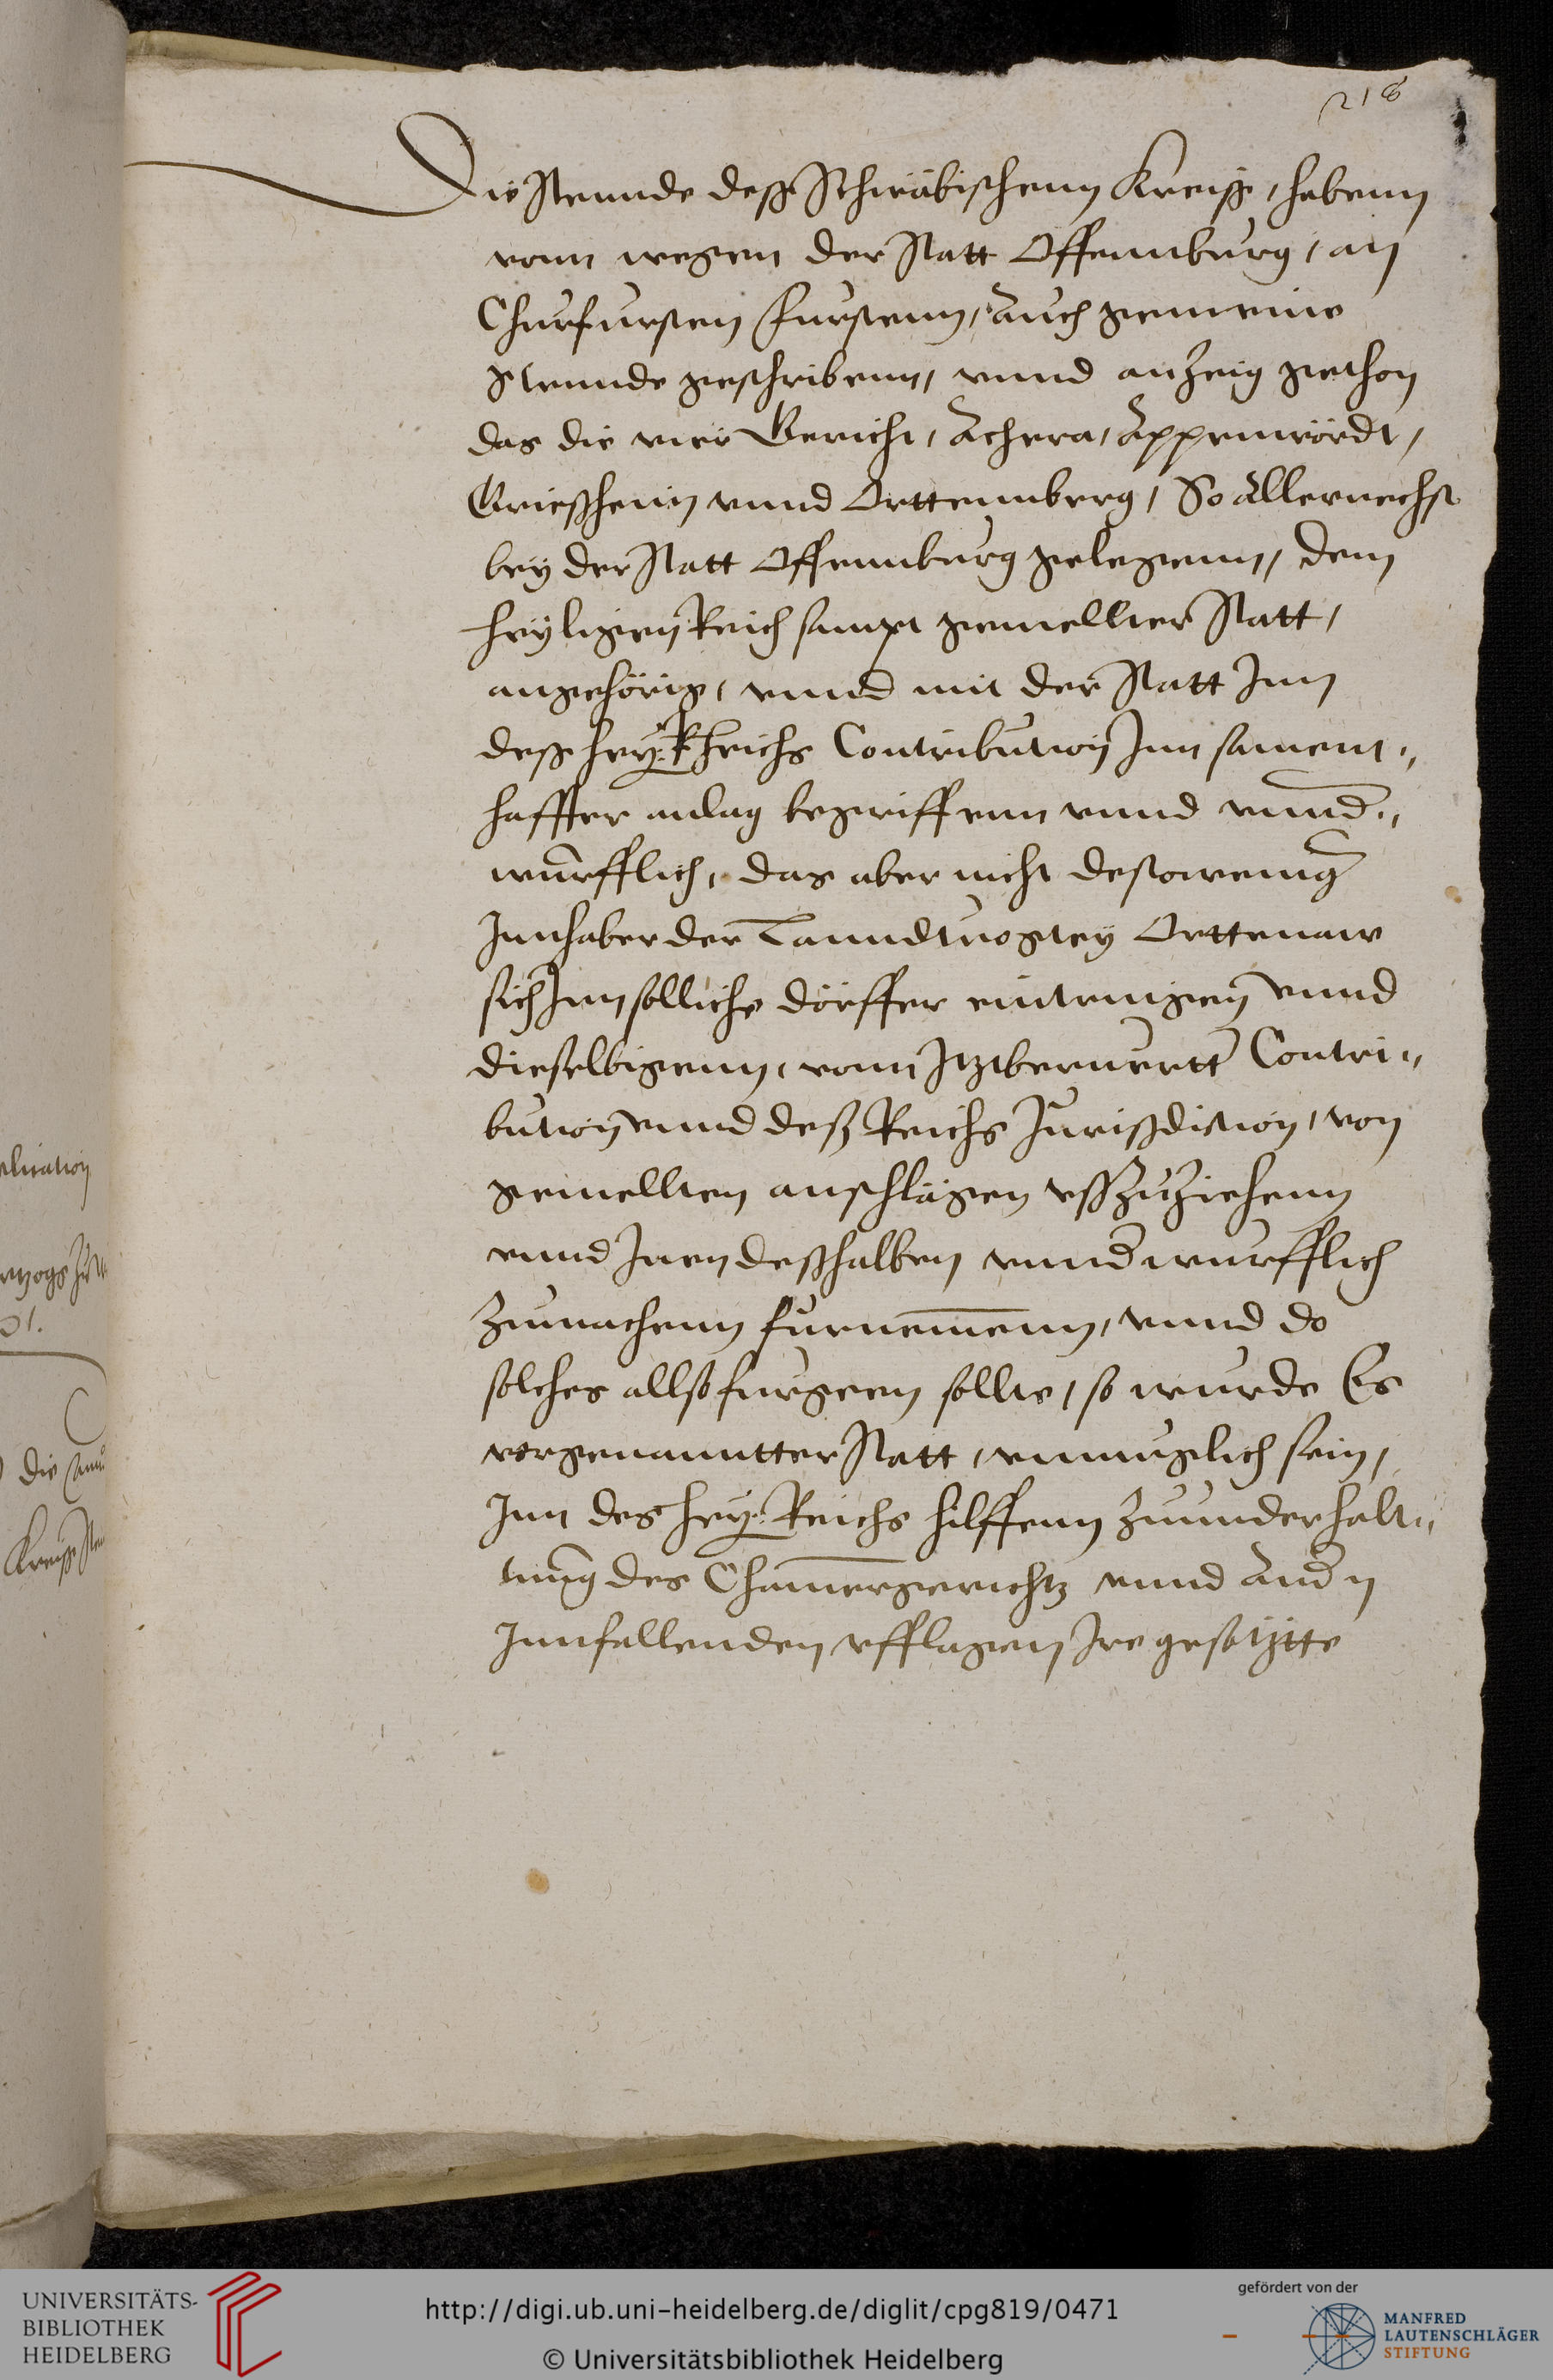 218
Die Stennde deß Schwäbischenn Kreiß, habenn
vonn wegen der Statt Offennburg, an
Churfursten Furstenn, Auch gemeine
Stennde geschribenn, vnnd anzeig gethon
das die vier Gericht, Achera, Appenwördt,
Grießheim vnnd Orttennberg, So Allernechst
bey der Statt Offennburg gelegenn, dem
heyligen Reich sampt gemellter Statt,
angehörig, vnnd mit der Statt Inn
deß hey: Reichs Contribution Inn sament-
haffter anlag begriffenn vnnd vnnd-
würfflich, das aber nicht destoweniger
Innhaber der Lanndtuogtey Orttenaw
sich Inn solliche dörffer eintringen vnnd
dieselbigenn, vonn Itztberuertt Contri-
bution vnnd deß Reichs Jurißdiction, von
gemellten anschlägen vßzuziehenn
vnnd Inen deßhalben vnnderwurfflich
zumachenn furnemmenn, vnnd do
solches allso furgeen sollte, so wurde Es
vorgenanntter Statt, vnmuglich sein,
Inn des hey: Reichs hilffenn zuunderhalt-
tung des Chammergerichtz vnnd Andern
Innfallenden vfflagen Ire gesetzte
die
Kreiß
UNIVERSITÄTS-
BIBLIOTHEK
HEIDELBERG
http://digi.ub.uni-heidelberg.de/diglit/cpg819/0471
© Universitätsbibliothek Heidelberg
gefördert von der
MANFRED
LAUTENSCHLÄGER
STIFTUNG